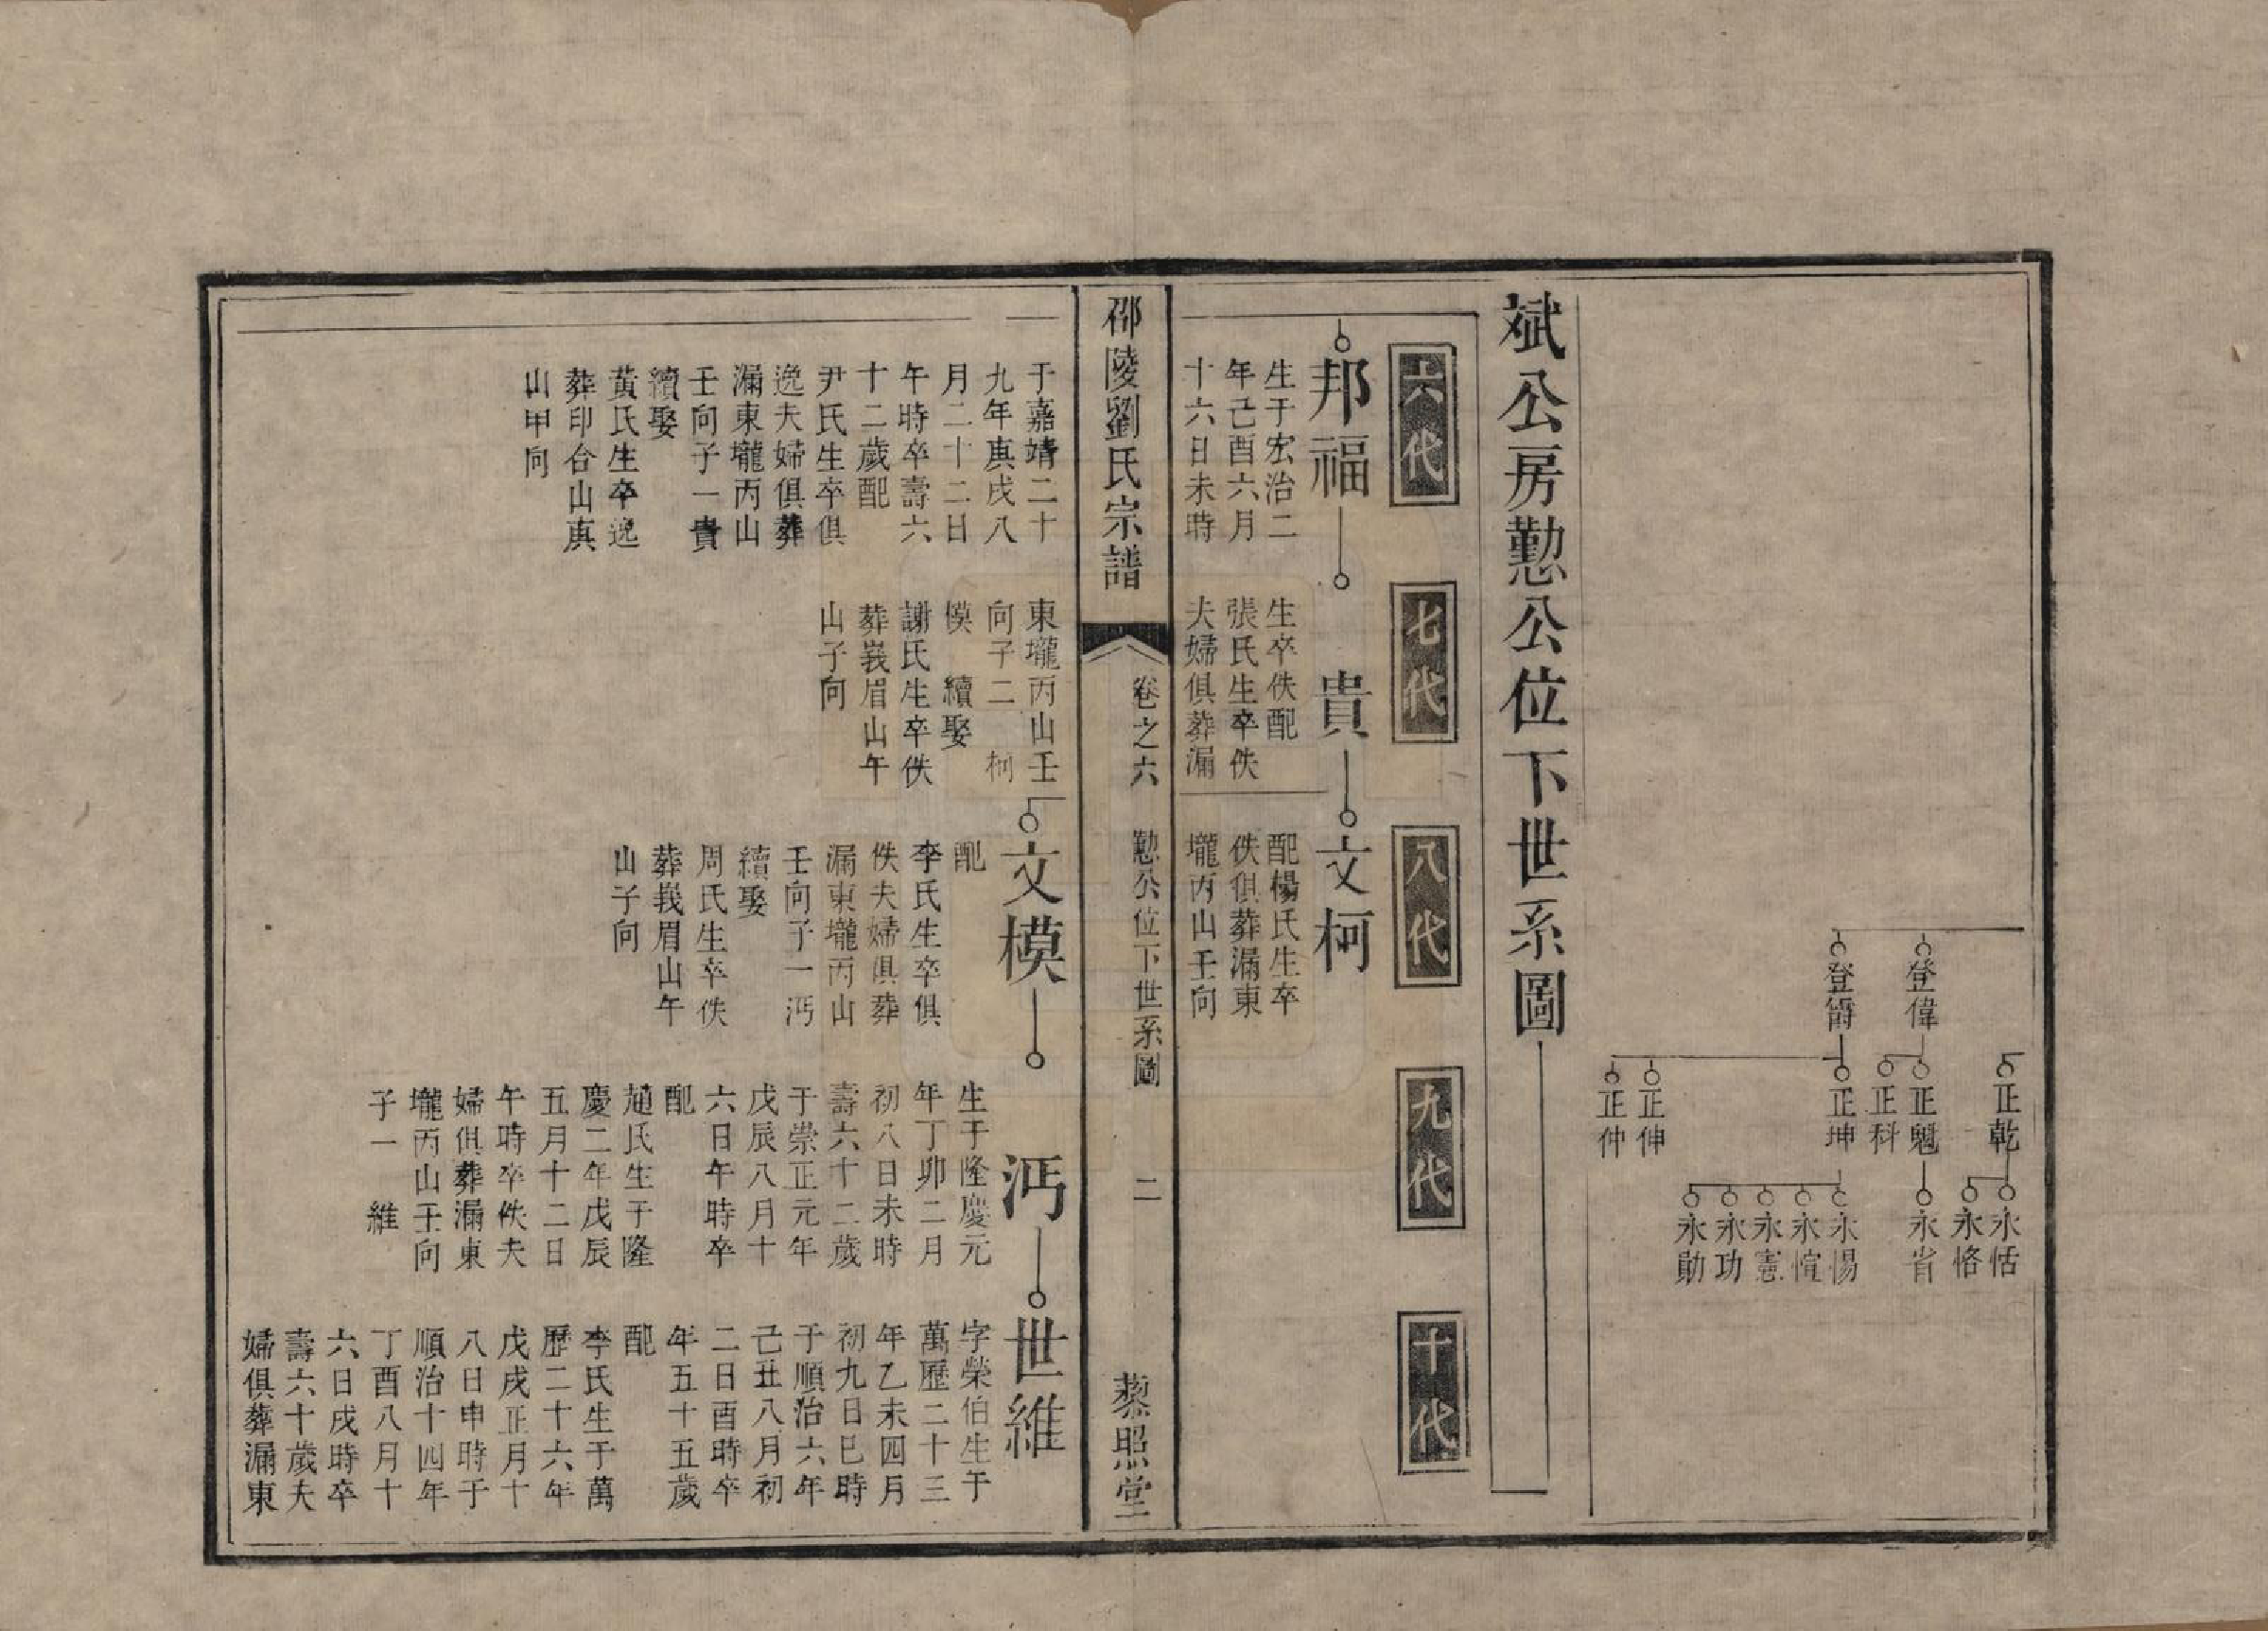 登偉
登爵
正乾
正魁
正科
正坤
正伸
正仲
永恬
永恪
永省
永惕
永愃
永憲
永功
永勛
斌公房懃公位下世系圖
六代
七代
八代
九代
十代
邦福
生于宏治二
年己酉六月
十六日未時
貴
生卒佚配
張氏生卒佚
夫婦俱葬漏
文柯
配楊氏生卒
佚俱葬漏東
壠丙山壬向
邵陵劉氏宗譜
卷之六
懃公位下世系圖
二
藜照堂
于嘉靖二十
九年庚戌八
月二十二日
午時卒壽六
十二歲配
尹氏生卒俱
逸夫婦俱葬
漏東壠丙山
壬向子一貴
續娶
黃氏生卒逸
葬印台山庚
山甲向
東壠丙山壬
向子二 柯
模 續娶
謝氏生卒佚
葬峩眉山午
山子向
文模
配
李氏生卒俱
佚夫婦俱葬
漏東壠丙山
壬向子一沔
續娶
周氏生卒佚
葬峩眉山午
山子向
沔
生于隆慶元
年丁卯二月
初八日未時
壽六十二歲
于崇正元年
戊辰八月十
六日午時卒
配
趙氏生于隆
慶二年戊辰
五月十二日
午時卒佚夫
婦俱葬漏東
壠丙山壬向
子一 維
世維
字榮伯生于
萬歷二十三
年乙未四月
初九日巳時
于順治六年
己丑八月初
二日酉時卒
年五十五歲
配
李氏生于萬
歷二十六年
戊戌正月十
八日申時于
順治十四年
丁酉八月十
六日戌時卒
壽六十歲夫
婦俱葬漏東